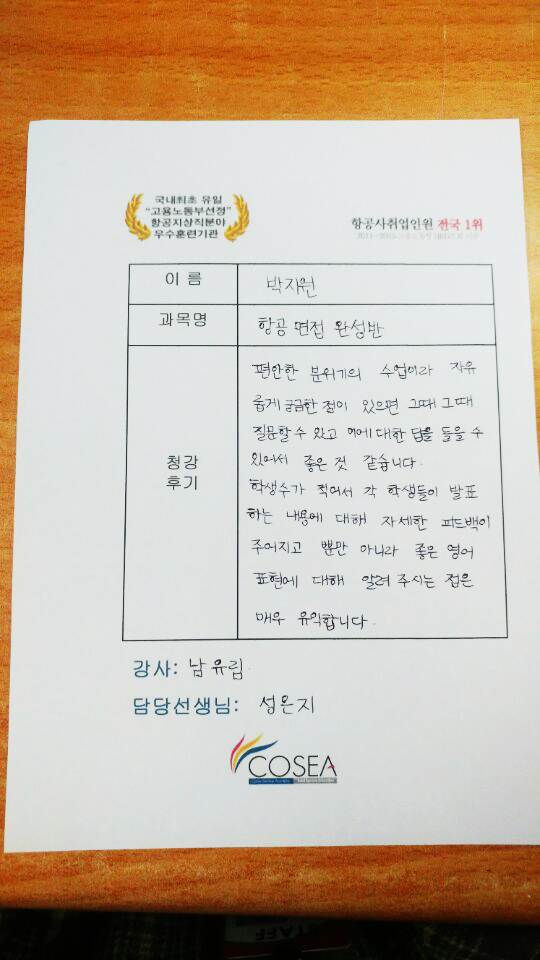 국내최초 유일
"고용노동부선정"
항공지상직분야
우수훈련기관
항공사취업인원 전국 1위
이 름
박지원
과목명
항공 면접 완성반
청강
후기
편안한 분위기의 수업이라 자유
롭게 궁금한 점이 있으면 그때 그때
질문할 수 있고 이에 대한 답을 들을 수
있어서 좋은 것 같습니다.
학생수가 적어서 각 학생들이 발표
하는 내용에 대해 자세한 피드백이
주어지고 뿐만 아니라 좋은 영어
표현에 대해 알려 주시는 점은
매우 유익합니다.
강사: 남유림
담당선생님: 성은지
COSEA